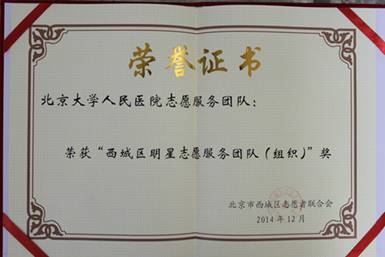 荣誉证书
北京大学人民医院志愿服务团队：
荣获“西城区明星志愿服务团队（组织）”奖
北京市西城区志愿者联合会
2014年12月